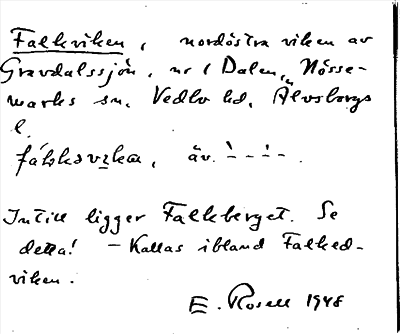 Falkviken, nordöstra viken av
Gravdalssjön, nr 1 Dalen, Nösse-
marks sn. Vedbo hd, Älvsborgs
l.
av. `- - ' - -.
Intill ligger Falkberget. Se
detta! - Kallas ibland Falked-
viken.
E. Rosell 1948